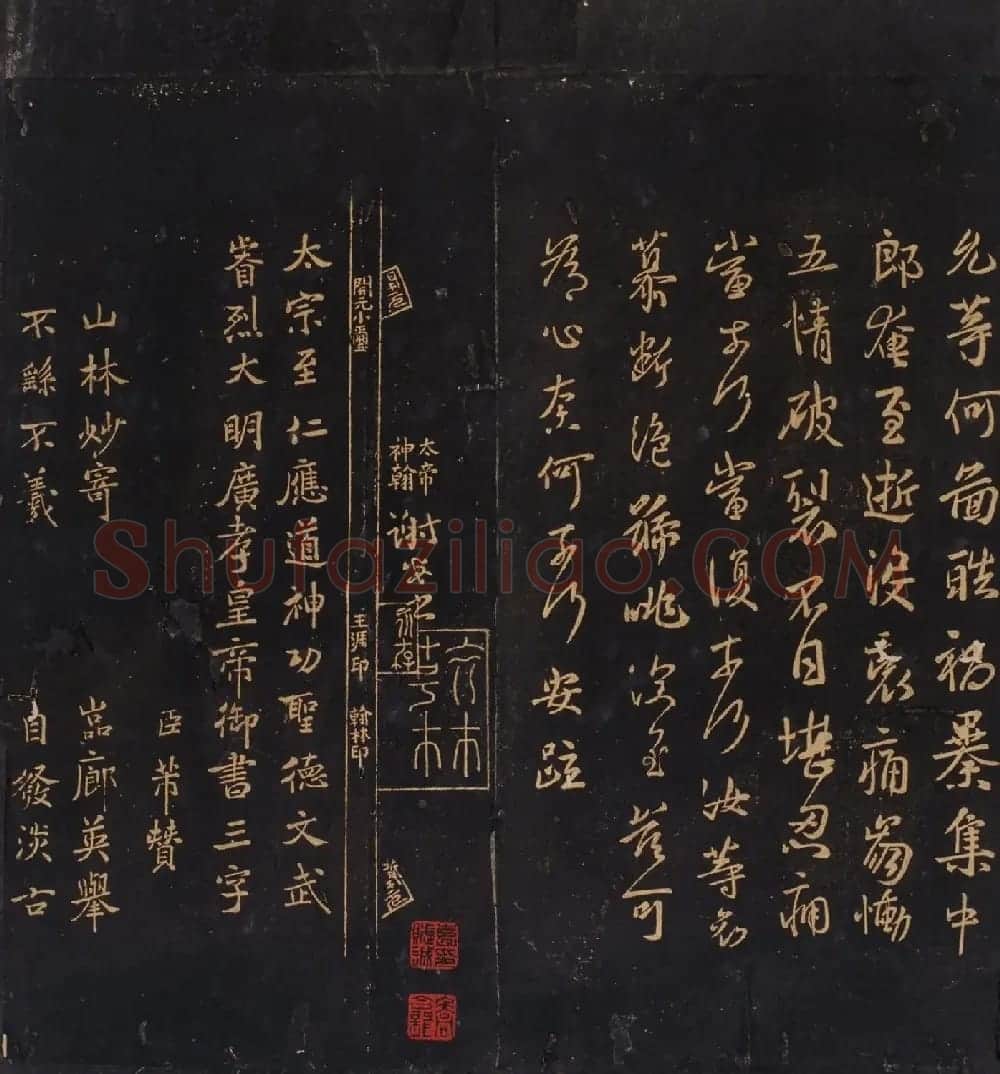 允等何圖酷禍暴集中
郎奄至逝沒哀痛崩慟
五情破裂不自堪忍痛
當奈何當復奈何汝等哀
慕斷絕號咷深至豈可
為心奈何奈何安疏
太帝
神翰
開元小璽
王涯印
翰林印
太宗至仁應道神功聖德文武
睿烈大明廣孝皇帝御書三字
臣芾贊
山林妙寄 嵓廊英舉
不繇不羲 自發淡古
Shufaziliao.COM